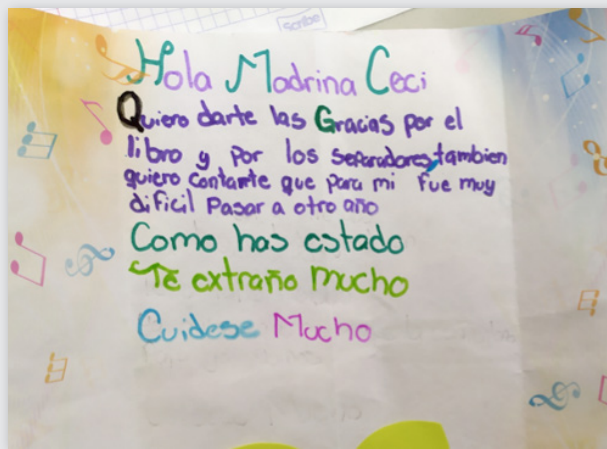 Scribe
Hola Madrina Ceci
Quiero darte las Gracias por el
libro y por los separadores, tambien
quiero contarte que para mi fue muy
dificil Pasar a otro año
Como has estado
Te extraño mucho
Cuidese Mucho